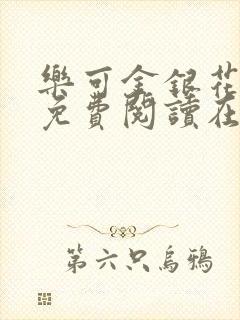 樂可金銀花
免費閱讀在
第六只烏鴉